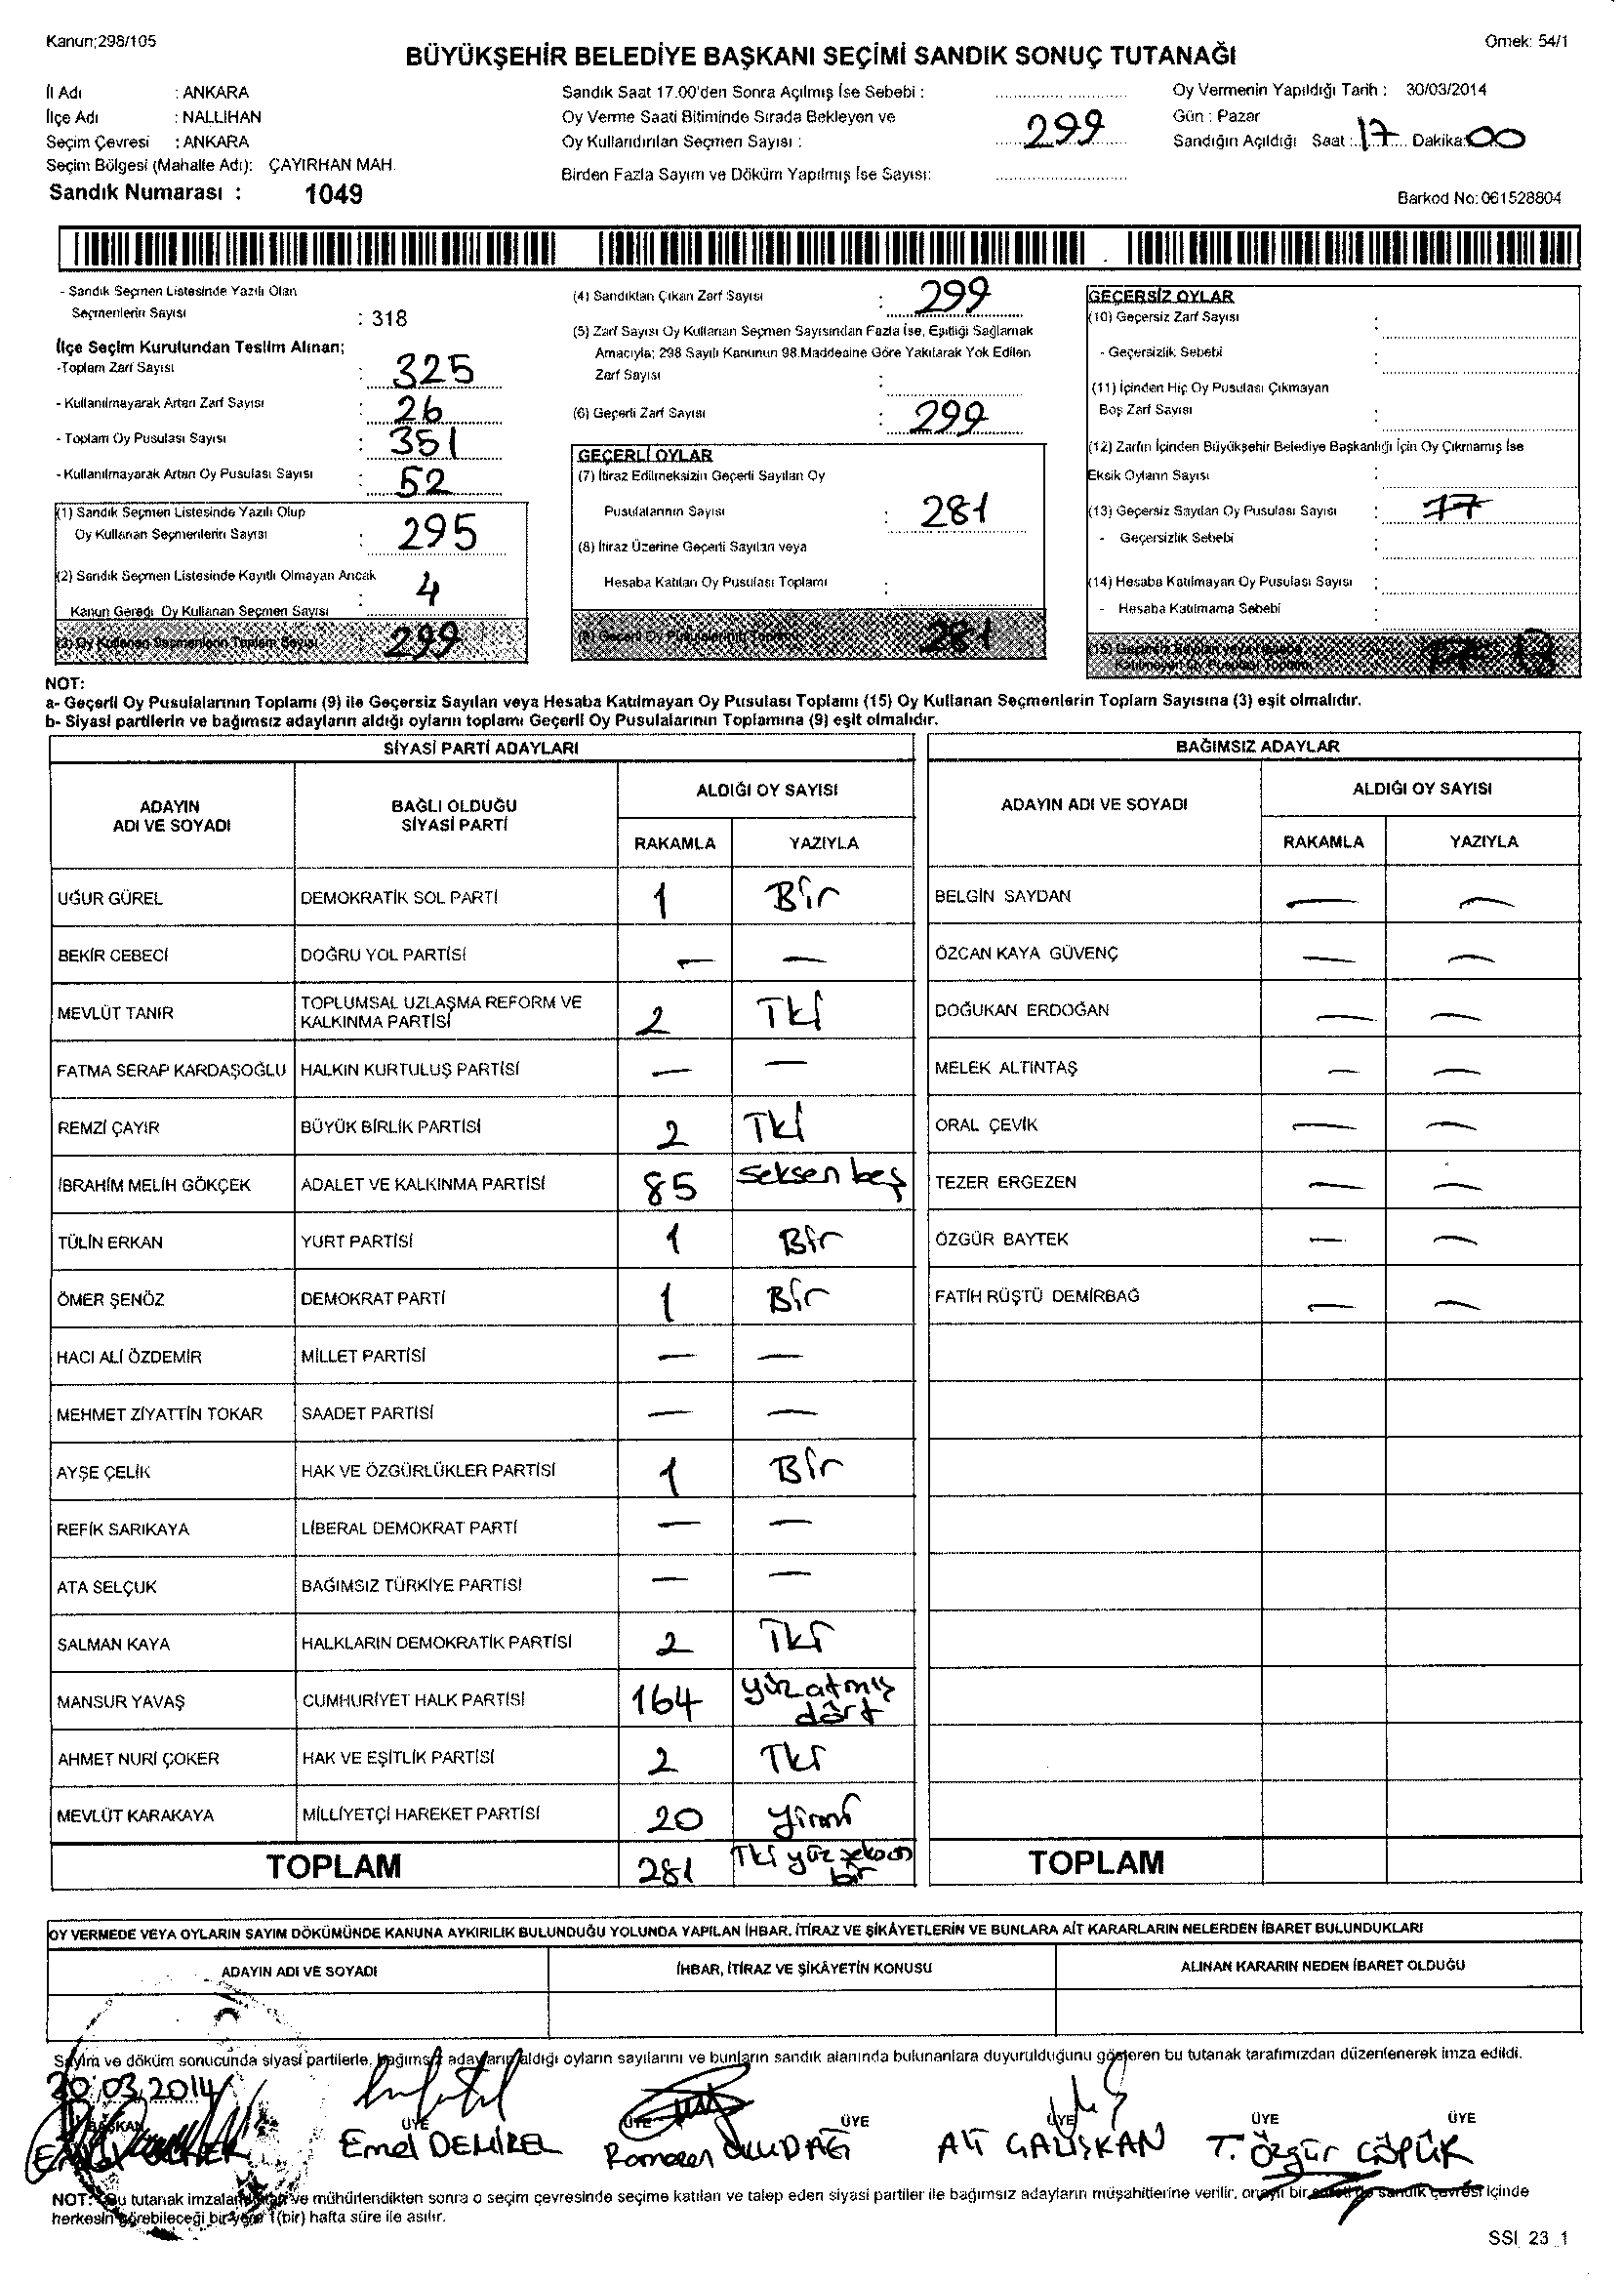 Kanun;298/105
Örnek: 54/1
BÜYÜKŞEHİR BELEDİYE BAŞKANI SEÇİMİ SANDIK SONUÇ TUTANAĞI
İl Adı : ANKARA
İlçe Adı : NALLIHAN
Seçim Çevresi : ANKARA
Seçim Bölgesi (Mahalle Adı): ÇAYIRHAN MAH.
Sandık Numarası : 1049
Sandık Saat 17.00'den Sonra Açılmış İse Sebebi :
Oy Verme Saati Bitiminde Sırada Bekleyen ve
Oy Kullandırılan Seçmen Sayısı : 299
Birden Fazla Sayım ve Döküm Yapılmış İse Sayısı:
Oy Vermenin Yapıldığı Tarih : 30/03/2014
Gün : Pazar
Sandığın Açıldığı Saat : 17 Dakika: 00
Barkod No: 061528804
- Sandık Seçmen Listesinde Yazılı Olan
Seçmenlerin Sayısı : 318
İlçe Seçim Kurulundan Teslim Alınan;
-Toplam Zarf Sayısı : 325
- Kullanılmayarak Artan Zarf Sayısı : 26
- Toplam Oy Pusulası Sayısı : 351
- Kullanılmayarak Artan Oy Pusulası Sayısı : 52
(1) Sandık Seçmen Listesinde Yazılı Olup
Oy Kullanan Seçmenlerin Sayısı : 295
(2) Sandık Seçmen Listesinde Kayıtlı Olmayan Ancak
Kanun Gereği Oy Kullanan Seçmen Sayısı : 4
(3) Oy Kullanan Seçmenlerin Toplam Sayısı 299
(4) Sandıktan Çıkan Zarf Sayısı : 299
(5) Zarf Sayısı Oy Kullanan Seçmen Sayısından Fazla İse, Eşitliği Sağlamak
Amacıyla; 298 Sayılı Kanunun 98.Maddesine Göre Yakılarak Yok Edilen
Zarf Sayısı :
(6) Geçerli Zarf Sayısı : 299
GEÇERLİ OYLAR
(7) İtiraz Edilmeksizin Geçerli Sayılan Oy
Pusulalarının Sayısı : 281
(8) İtiraz Üzerine Geçerli Sayılan veya
Hesaba Katılan Oy Pusulası Toplamı :
(9) Geçerli Oy Pusulalarının Toplamı 281
GEÇERSİZ OYLAR
(10) Geçersiz Zarf Sayısı :
- Geçersizlik Sebebi :
(11) İçinden Hiç Oy Pusulası Çıkmayan
Boş Zarf Sayısı :
(12) Zarfın İçinden Büyükşehir Belediye Başkanlığı İçin Oy Çıkmamış İse
Eksik Oyların Sayısı :
(13) Geçersiz Sayılan Oy Pusulası Sayısı : 17
- Geçersizlik Sebebi :
(14) Hesaba Katılmayan Oy Pusulası Sayısı :
- Hesaba Katılmama Sebebi :
(15) Geçersiz Sayılan veya Hesaba
Katılmayan Oy Pusulası Toplamı
NOT:
a- Geçerli Oy Pusulalarının Toplamı (9) ile Geçersiz Sayılan veya Hesaba Katılmayan Oy Pusulası Toplamı (15) Oy Kullanan Seçmenlerin Toplam Sayısına (3) eşit olmalıdır.
b- Siyasi partilerin ve bağımsız adayların aldığı oyların toplamı Geçerli Oy Pusulalarının Toplamına (9) eşit olmalıdır.
SİYASİ PARTİ ADAYLARI
ADAYIN ADI VE SOYADI
BAĞLI OLDUĞU SİYASİ PARTİ
ALDIĞI OY SAYISI
RAKAMLA YAZIYLA
UĞUR GÜREL DEMOKRATİK SOL PARTİ 1 Bir
BEKİR CEBECİ DOĞRU YOL PARTİSİ — —
MEVLÜT TANIR TOPLUMSAL UZLAŞMA REFORM VE KALKINMA PARTİSİ 2 İki
FATMA SERAP KARDAŞOĞLU HALKIN KURTULUŞ PARTİSİ — —
REMZİ ÇAYIR BÜYÜK BİRLİK PARTİSİ 2 İki
İBRAHİM MELİH GÖKÇEK ADALET VE KALKINMA PARTİSİ 85 seksen beş
TÜLİN ERKAN YURT PARTİSİ 1 Bir
ÖMER ŞENÖZ DEMOKRAT PARTİ 1 Bir
HACI ALİ ÖZDEMİR MİLLET PARTİSİ — —
MEHMET ZİYATTİN TOKAR SAADET PARTİSİ — —
AYŞE ÇELİK HAK VE ÖZGÜRLÜKLER PARTİSİ 1 Bir
REFİK SARIKAYA LİBERAL DEMOKRAT PARTİ — —
ATA SELÇUK BAĞIMSIZ TÜRKİYE PARTİSİ — —
SALMAN KAYA HALKLARIN DEMOKRATİK PARTİSİ 2 İki
MANSUR YAVAŞ CUMHURİYET HALK PARTİSİ 164 yüz atmış dört
AHMET NURİ ÇOKER HAK VE EŞİTLİK PARTİSİ 2 İki
MEVLÜT KARAKAYA MİLLİYETÇİ HAREKET PARTİSİ 20 yirmi
TOPLAM 281 İki yüz seksen bir
BAĞIMSIZ ADAYLAR
ADAYIN ADI VE SOYADI
ALDIĞI OY SAYISI
RAKAMLA YAZIYLA
BELGİN SAYDAN — —
ÖZCAN KAYA GÜVENÇ — —
DOĞUKAN ERDOĞAN — —
MELEK ALTINTAŞ — —
ORAL ÇEVİK — —
TEZER ERGEZEN — —
ÖZGÜR BAYTEK — —
FATİH RÜŞTÜ DEMİRBAĞ — —
TOPLAM
OY VERMEDE VEYA OYLARIN SAYIM DÖKÜMÜNDE KANUNA AYKIRILIK BULUNDUĞU YOLUNDA YAPILAN İHBAR, İTİRAZ VE ŞİKÂYETLERİN VE BUNLARA AİT KARARLARIN NELERDEN İBARET BULUNDUKLARI
ADAYIN ADI VE SOYADI
İHBAR, İTİRAZ VE ŞİKÂYETİN KONUSU
ALINAN KARARIN NEDEN İBARET OLDUĞU
Sayım ve döküm sonucunda siyasi partilerle, bağımsız adayların aldığı oyların sayılarını ve bunların sandık alanında bulunanlara duyurulduğunu gösteren bu tutanak tarafımızdan düzenlenerek imza edildi.
30.03.2014
BAŞKAN ÜYE ÜYE ÜYE ÜYE ÜYE ÜYE
Emel DEMİREL Ramazan ULUDAĞ Ali ÇALIŞKAN T. Özgür ÇÖPÜK
NOT: Bu tutanak imzalandıktan ve mühürlendikten sonra o seçim çevresinde seçime katılan ve talep eden siyasi partiler ile bağımsız adayların müşahitlerine verilir, onaylı bir sureti de sandık çevresi içinde
herkesin görebileceği bir yere 1(bir) hafta süre ile asılır.
SSI_23_1